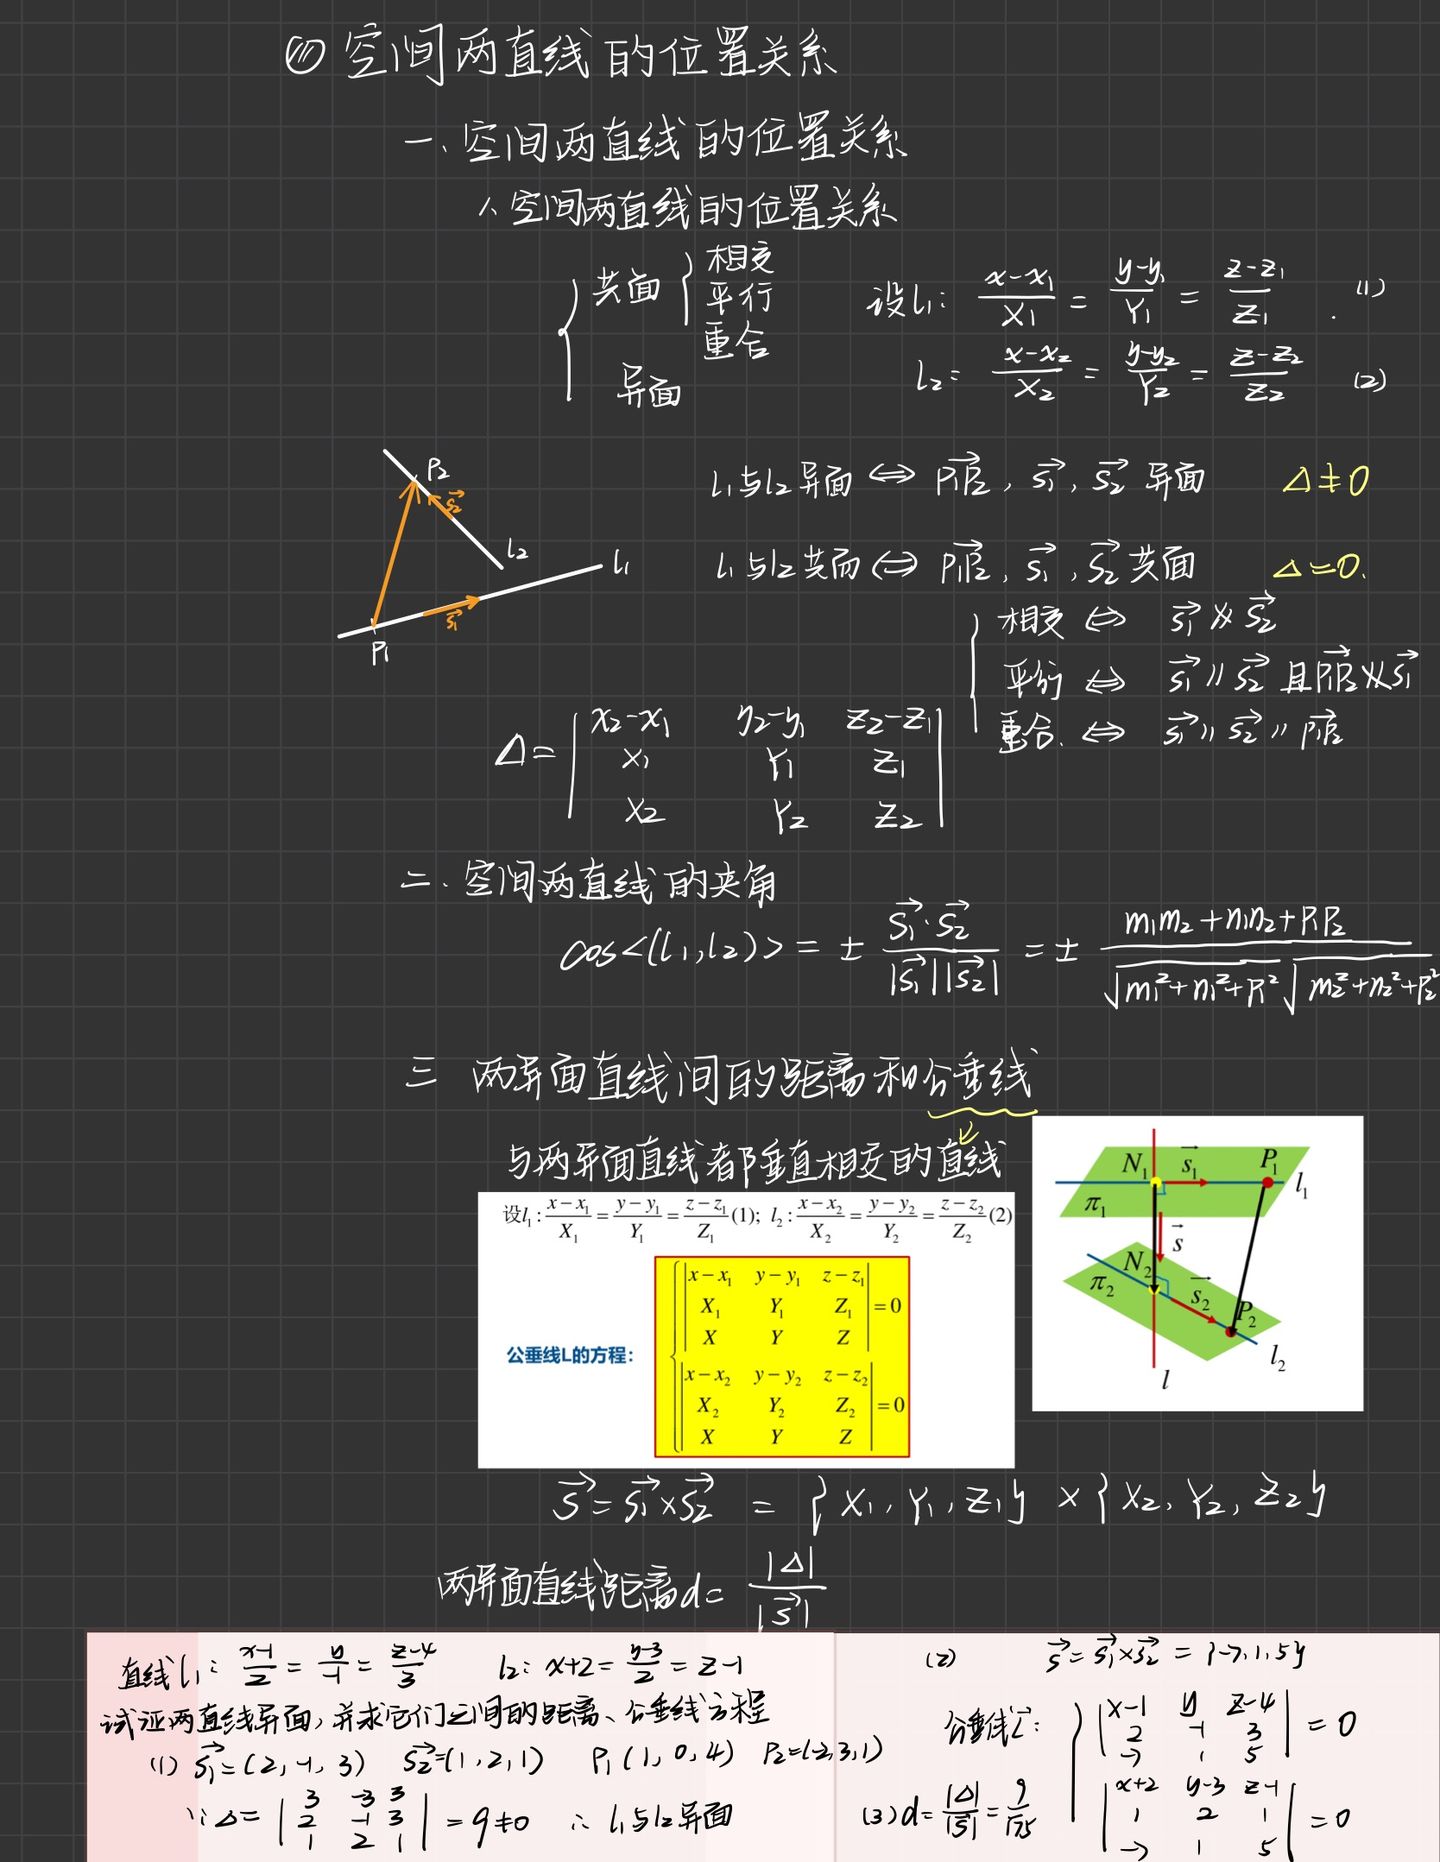 (四) 空间两直线的位置关系
一. 空间两直线的位置关系
1、空间两直线的位置关系
{ 共面 { 相交 平行 重合
异面
设l₁: (x-x₁)/X₁ = (y-y₁)/Y₁ = (z-z₁)/Z₁ . (1)
l₂: (x-x₂)/X₂ = (y-y₂)/Y₂ = (z-z₂)/Z₂ (2)
P₂
s₂→
l₂
l₁
s₁→
P₁
l₁与l₂异面 ⇔ P₁P₂→, s₁→, s₂→ 异面 Δ≠0
l₁与l₂共面 ⇔ P₁P₂→, s₁→, s₂→ 共面 Δ=0.
{ 相交 ⇔ s₁→ ∦ s₂→
平行 ⇔ s₁→ // s₂→ 且 P₁P₂→ ∦ s₁→
重合. ⇔ s₁→ // s₂→ // P₁P₂→
Δ = | x₂-x₁ y₂-y₁ z₂-z₁ |
| X₁ Y₁ Z₁ |
| X₂ Y₂ Z₂ |
二. 空间两直线的夹角
cos<(l₁,l₂)> = ± (s₁→·s₂→)/(|s₁→||s₂→|) = ± (m₁m₂+n₁n₂+P₁P₂)/(√(m₁²+n₁²+P₁²) √(m₂²+n₂²+P₂²))
三 两异面直线间的距离和公垂线
与两异面直线都垂直相交的直线
设l₁: (x-x₁)/X₁ = (y-y₁)/Y₁ = (z-z₁)/Z₁ (1); l₂: (x-x₂)/X₂ = (y-y₂)/Y₂ = (z-z₂)/Z₂ (2)
公垂线L的方程:
{ | x-x₁ y-y₁ z-z₁ |
| X₁ Y₁ Z₁ | = 0
| X Y Z |
| x-x₂ y-y₂ z-z₂ |
| X₂ Y₂ Z₂ | = 0
| X Y Z |
N₁ s₁→ P₁ l₁
π₁
s→
N₂
π₂ s₂→ P₂
l₂
l
s→ = s₁→×s₂→ = {X₁, Y₁, Z₁} × {X₂, Y₂, Z₂}
两异面直线距离d = |Δ|/|s→|
直线l₁: (x-1)/2 = y/-1 = (z-4)/3 l₂: x+2 = (y-3)/2 = z-1
试证两直线异面, 并求它们之间的距离、公垂线方程
(1) s₁→=(2,-1,3) s₂→=(1,2,1) P₁(1,0,4) P₂=(-2,3,1)
∵ Δ= | 3 -3 3 |
| 2 -1 3 | = 9≠0 ∴ l₁与l₂异面
| 1 2 1 |
(2) s→=s₁→×s₂→ = {-7,1,5}
公垂线L: { | x-1 y z-4 |
| 2 -1 3 | = 0
| -7 1 5 |
| x+2 y-3 z-1 |
| 1 2 1 | = 0
| -7 1 5 |
(3) d = |Δ|/|s→| = 9/√75